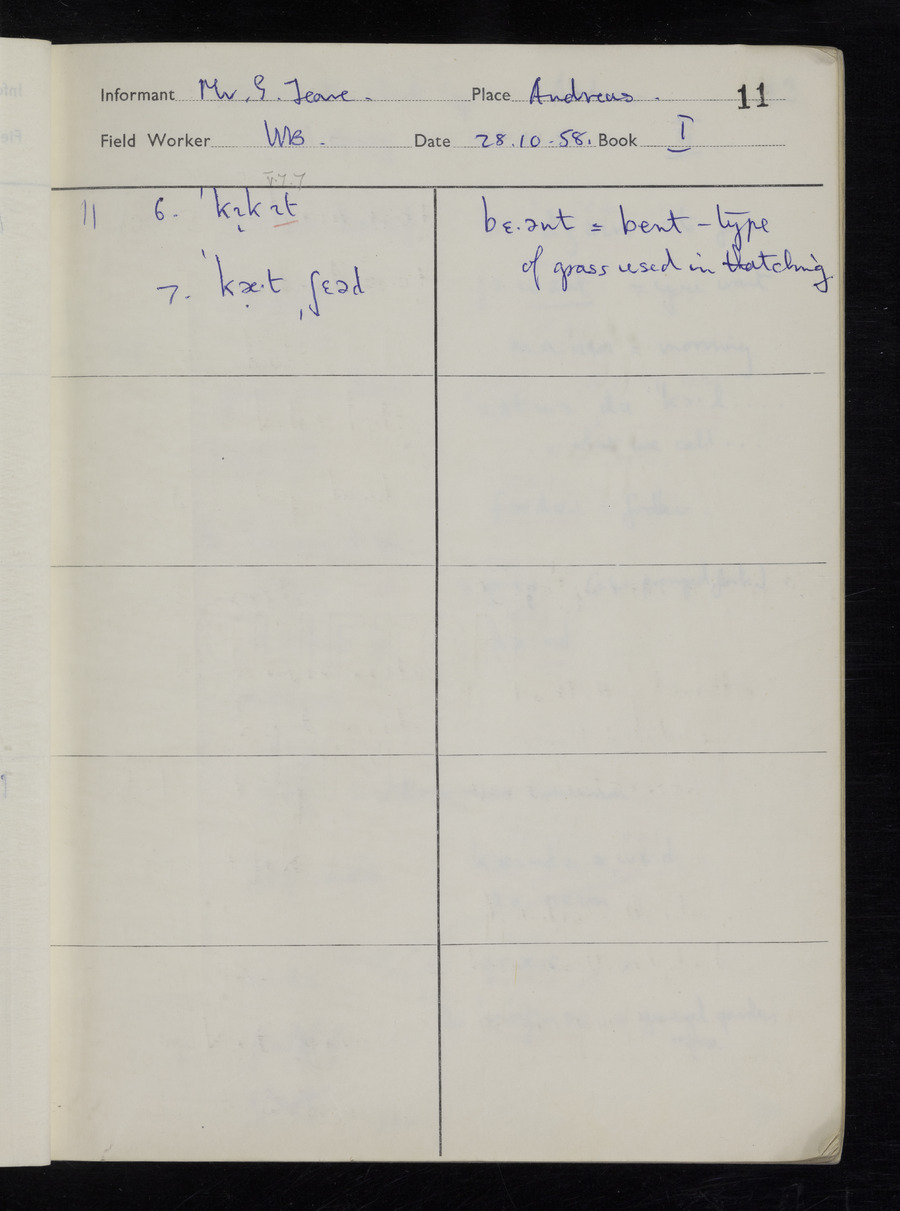 Informant Mr. G. Teare. Place Andreas. 11
Field Worker WB. Date 28.10.58. Book I
V.7.7
11 6. ˈkɪkɪt
bɛ·ənt = bent - type
of grass used in thatching
7. ˈkæ·t ˌʃɛəd